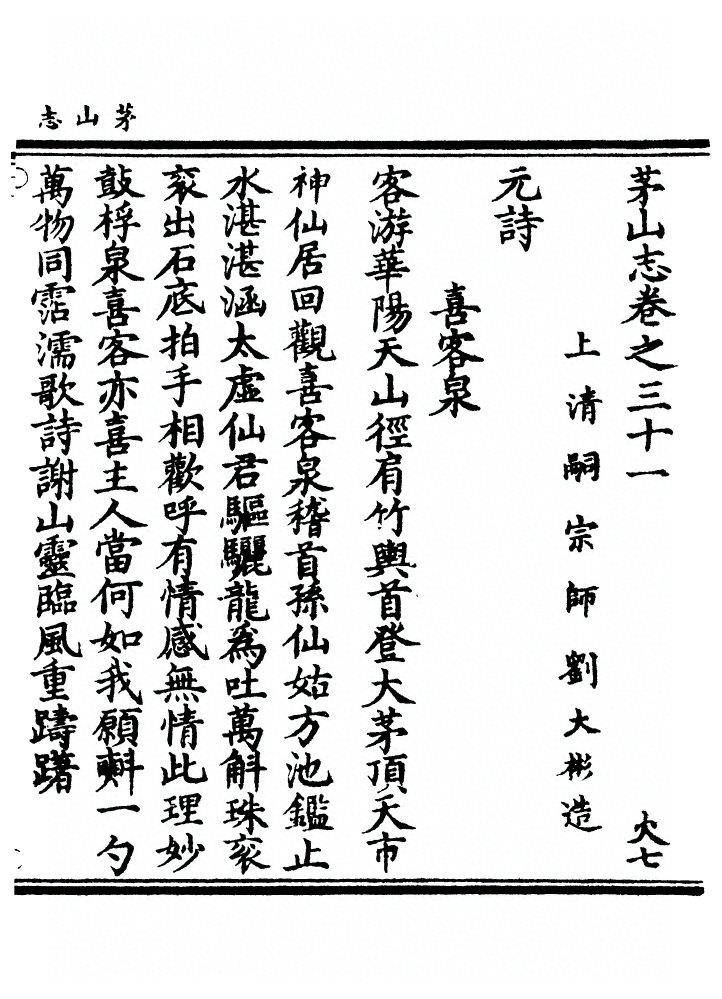 茅山志
茅山志卷之三十一 火七
上清嗣宗師劉大彬造
元詩
喜客泉
客游華陽天山徑肩竹輿首登大茅頂天市
神仙居回觀喜客泉稽首孫仙姑方池鑑止
水湛湛涵太虛仙君驅驪龍爲吐萬斛珠衮
衮出石底拍手相歡呼有情感無情此理妙
鼓桴泉喜客亦喜主人當何如我願㪺一勺
萬物同霑濡歌詩謝山靈臨風重躊躇